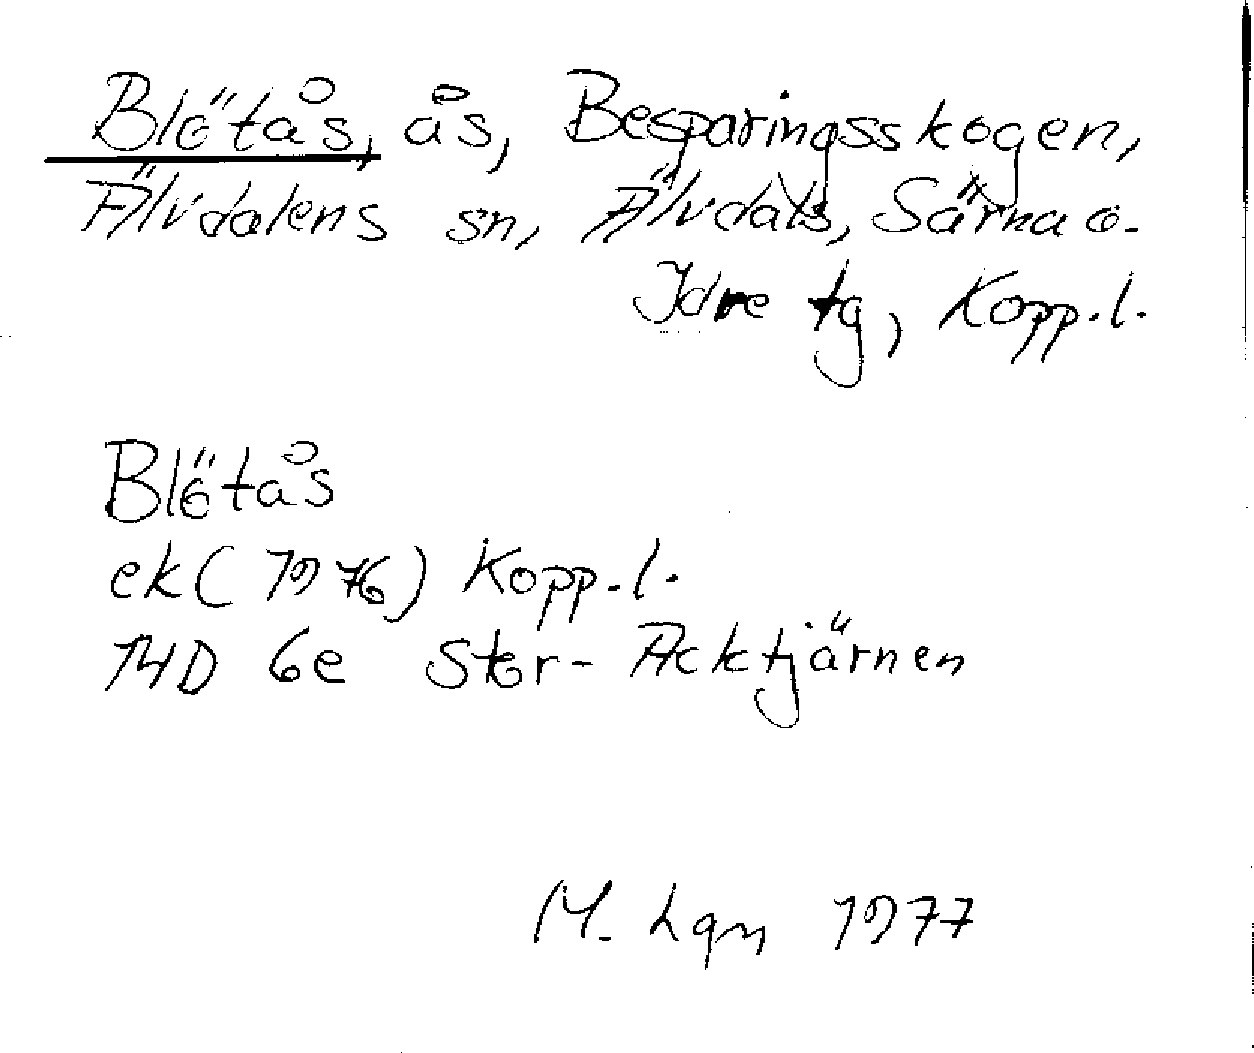 Blötås, ås, Besparingsskogen,
Älvdalens sn, Älvdals, Särna o.
Idre tg, Kopp.l.
Blötås
ek (1976) Kopp.l.
14D 6e Stor-Acktjärnen
M. Lgn 1977